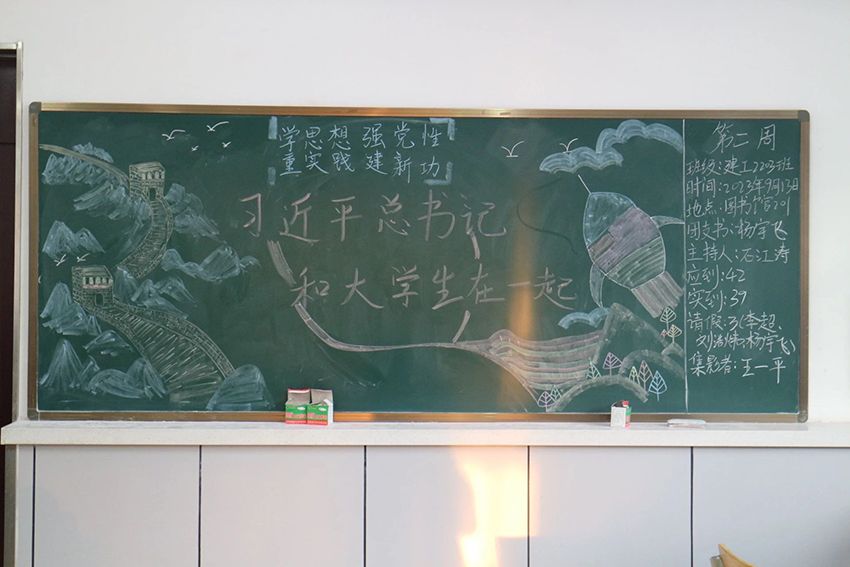 学思想 强党性
重实践 建新功
习近平总书记
和大学生在一起
第二周
班级:建工2203班
时间:2023年9月13日
地点:图书馆201
团支书:杨宇飞
主持人:石江涛
应到:42
实到:39
请假:3(李超、
刘浩炜、杨宇飞)
王一平